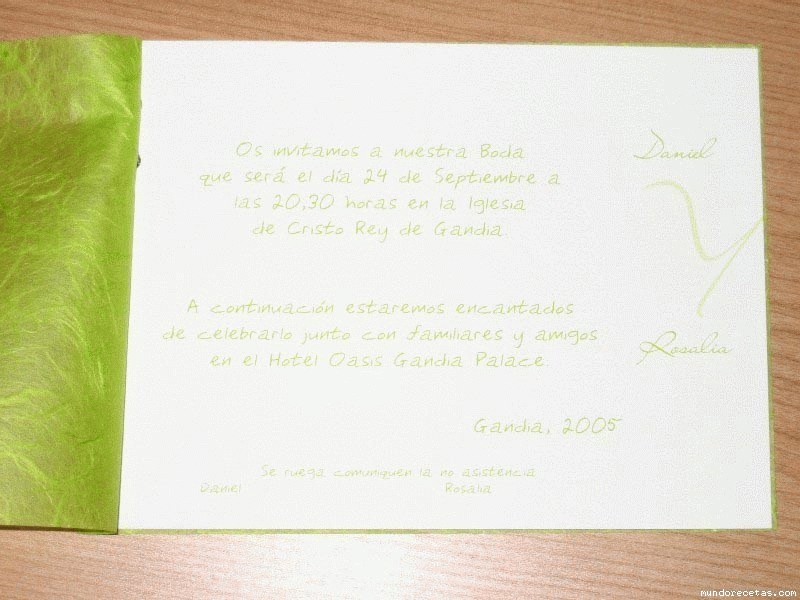 Os invitamos a nuestra Boda
que será el día 24 de Septiembre a
las 20,30 horas en la Iglesia
de Cristo Rey de Gandia.
Daniel
y
Rosalia
A continuación estaremos encantados
de celebrarlo junto con familiares y amigos
en el Hotel Oasis Gandia Palace.
Gandia, 2005
Se ruega comuniquen la no asistencia
Daniel Rosalia
mundorecetas.com